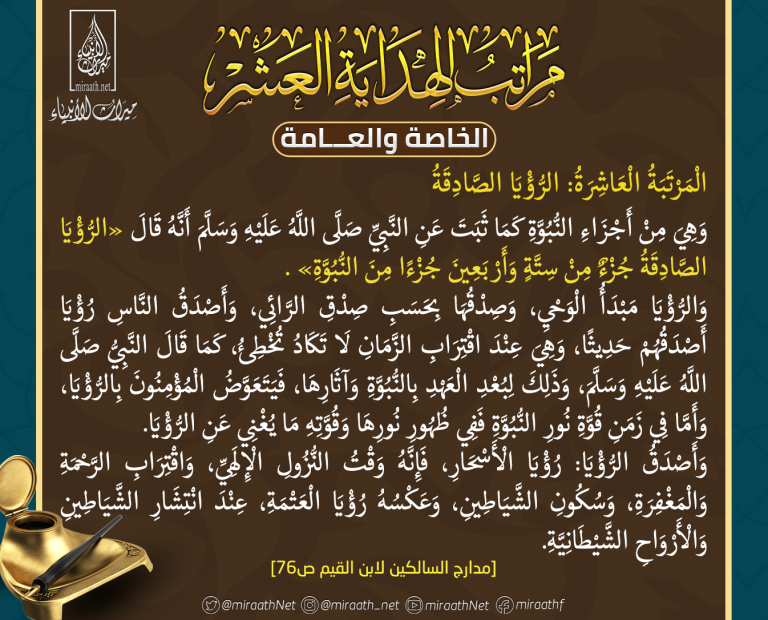 miraath.net
ميراث الأنبياء
مَرَاتِبُ الهِدَايَةِ العَشْر
الخاصة والعـــامة
الْمَرْتَبَةُ الْعَاشِرَةُ: الرُّؤْيَا الصَّادِقَةُ
وَهِيَ مِنْ أَجْزَاءِ النُّبُوَّةِ كَمَا ثَبَتَ عَنِ النَّبِيِّ صَلَّى اللَّهُ عَلَيْهِ وَسَلَّمَ أَنَّهُ قَالَ «الرُّؤْيَا
الصَّادِقَةُ جُزْءٌ مِنْ سِتَّةٍ وَأَرْبَعِينَ جُزْءًا مِنَ النُّبُوَّةِ» .
وَالرُّؤْيَا مَبْدَأُ الْوَحْيِ، وَصِدْقُهَا بِحَسَبِ صِدْقِ الرَّائِي، وَأَصْدَقُ النَّاسِ رُؤْيَا
أَصْدَقُهُمْ حَدِيثًا، وَهِيَ عِنْدَ اقْتِرَابِ الزَّمَانِ لَا تَكَادُ تُخْطِئُ، كَمَا قَالَ النَّبِيُّ صَلَّى
اللَّهُ عَلَيْهِ وَسَلَّمَ، وَذَلِكَ لِبُعْدِ الْعَهْدِ بِالنُّبُوَّةِ وَآثَارِهَا، فَيَتَعَوَّضُ الْمُؤْمِنُونَ بِالرُّؤْيَا،
وَأَمَّا فِي زَمَنِ قُوَّةِ نُورِ النُّبُوَّةِ فَفِي ظُهُورِ نُورِهَا وَقُوَّتِهِ مَا يُغْنِي عَنِ الرُّؤْيَا.
وَأَصْدَقُ الرُّؤْيَا: رُؤْيَا الْأَسْحَارِ، فَإِنَّهُ وَقْتُ النُّزُولِ الْإِلَهِيِّ، وَاقْتِرَابِ الرَّحْمَةِ
وَالْمَغْفِرَةِ، وَسُكُونِ الشَّيَاطِينِ، وَعَكْسُهُ رُؤْيَا الْعَتْمَةِ، عِنْدَ انْتِشَارِ الشَّيَاطِينِ
وَالْأَرْوَاحِ الشَّيْطَانِيَّةِ.
[مدارج السالكين لابن القيم ص76]
@miraathNet @miraath_net miraathNet miraathf